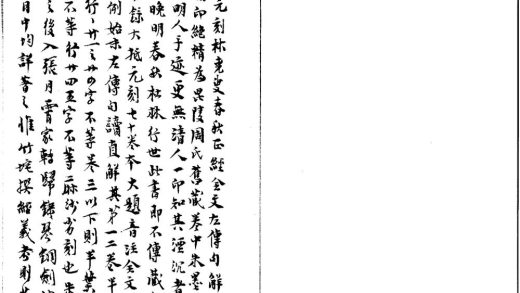 元刻林堯叟春秋正經全文左傳句解
印絕精為毘陵周氏舊藏卷中朱墨
明人手迹更無清人一印知其湮沉者
晚明春秋杜林行世此書即不傳藏
錄大抵元刻七十卷本大題音注全文
例始末左傳句讀直解其第一二卷半
行行廿一三廿四字不等卷三以下則半葉
不等行廿四五字不等二麻沙刻也
之後入張月霄家轉歸鐵琴銅劍
目中均詳著之惟竹垞撰經義考則